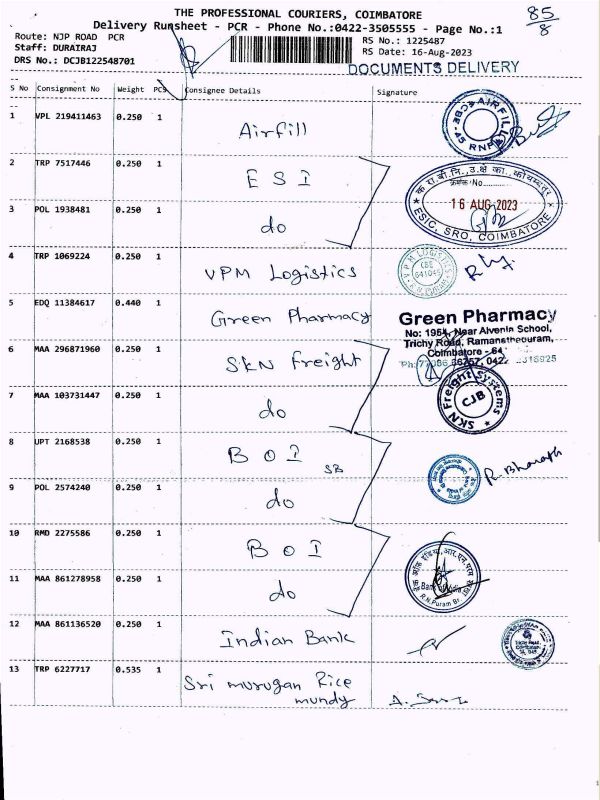 THE PROFESSIONAL COURIERS, COIMBATORE
85/8
Delivery Runsheet - PCR - Phone No.:0422-3505555 - Page No.:1
Route: NJP ROAD PCR
RS No.: 1225487
Staff: DURAIRAJ
RS Date: 16-Aug-2023
DRS No.: DCJB122548701
DOCUMENTS DELIVERY
S No Consignment No Weight PCS Consignee Details Signature
1 VPL 219411463 0.250 1 Airfill
AIRFILL CBE-45 RNP
2 TRP 7517446 0.250 1 ESI
क रा बी नि., उ क्षे का., कोयम्बत्तूर
क्रमांक/No.
16 AUG 2023
ESIC, SRO, COIMBATORE
3 POL 1938481 0.250 1 do
4 TRP 1069224 0.250 1 VPM Logistics
VPM LOGISTICS
CBE
641045
5 EDQ 11384617 0.440 1 Green Pharmacy
Green Pharmacy
No: 195A, Near Alvenia School,
Trichy Road, Ramanathapuram,
Coimbatore - 64
6 MAA 296871960 0.250 1 SKN Freight
SKN Freight Systems
CJB
7 MAA 103731447 0.250 1 do
8 UPT 2168538 0.250 1 BOI SB
R. Bharath
9 POL 2574240 0.250 1 do
10 RMD 2275586 0.250 1 BOI
Bank of India
R.N.Puram Br.
11 MAA 861278958 0.250 1 do
12 MAA 861136520 0.250 1 Indian Bank
Trichy Road,
13 TRP 6227717 0.535 1 Sri murugan Rice
mundy